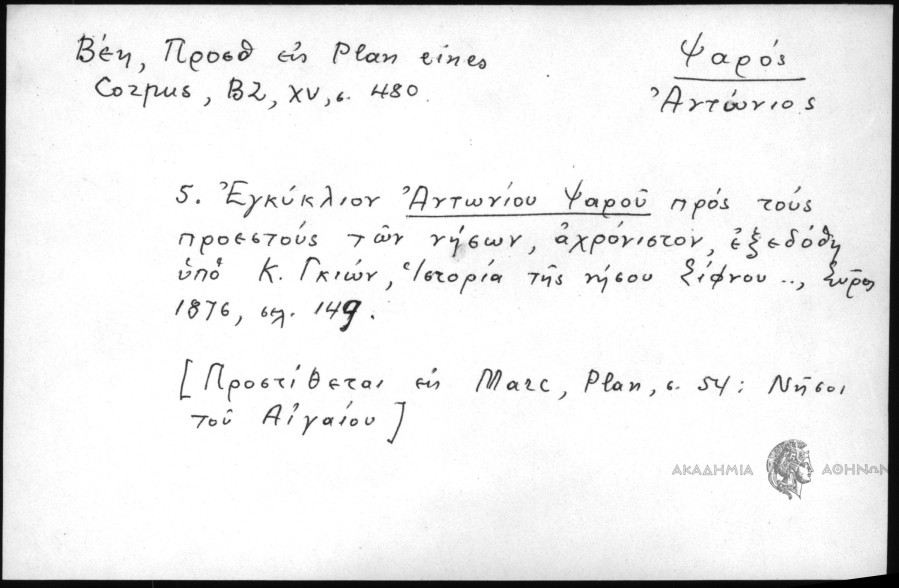 Βέη, Προσθ εἰς Plan eines
Corpus, BZ, XV, σ. 480
Ψαρός
Ἀντώνιος
5. Ἐγκύκλιον Ἀντωνίου Ψαροῦ πρός τούς
προεστούς τῶν νήσων, ἀχρόνιστον, ἐξεδόθη
ὑπό Κ. Γκιών, Ἱστορία τῆς νήσου Σίφνου .., Σῦρος
1876, σελ. 149.
[Προστίθεται εἰς Marc, Plan, σ. 54: Νῆσοι
τοῦ Αἰγαίου]
ΑΚΑΔΗΜΙΑ ΑΘΗΝΩΝ